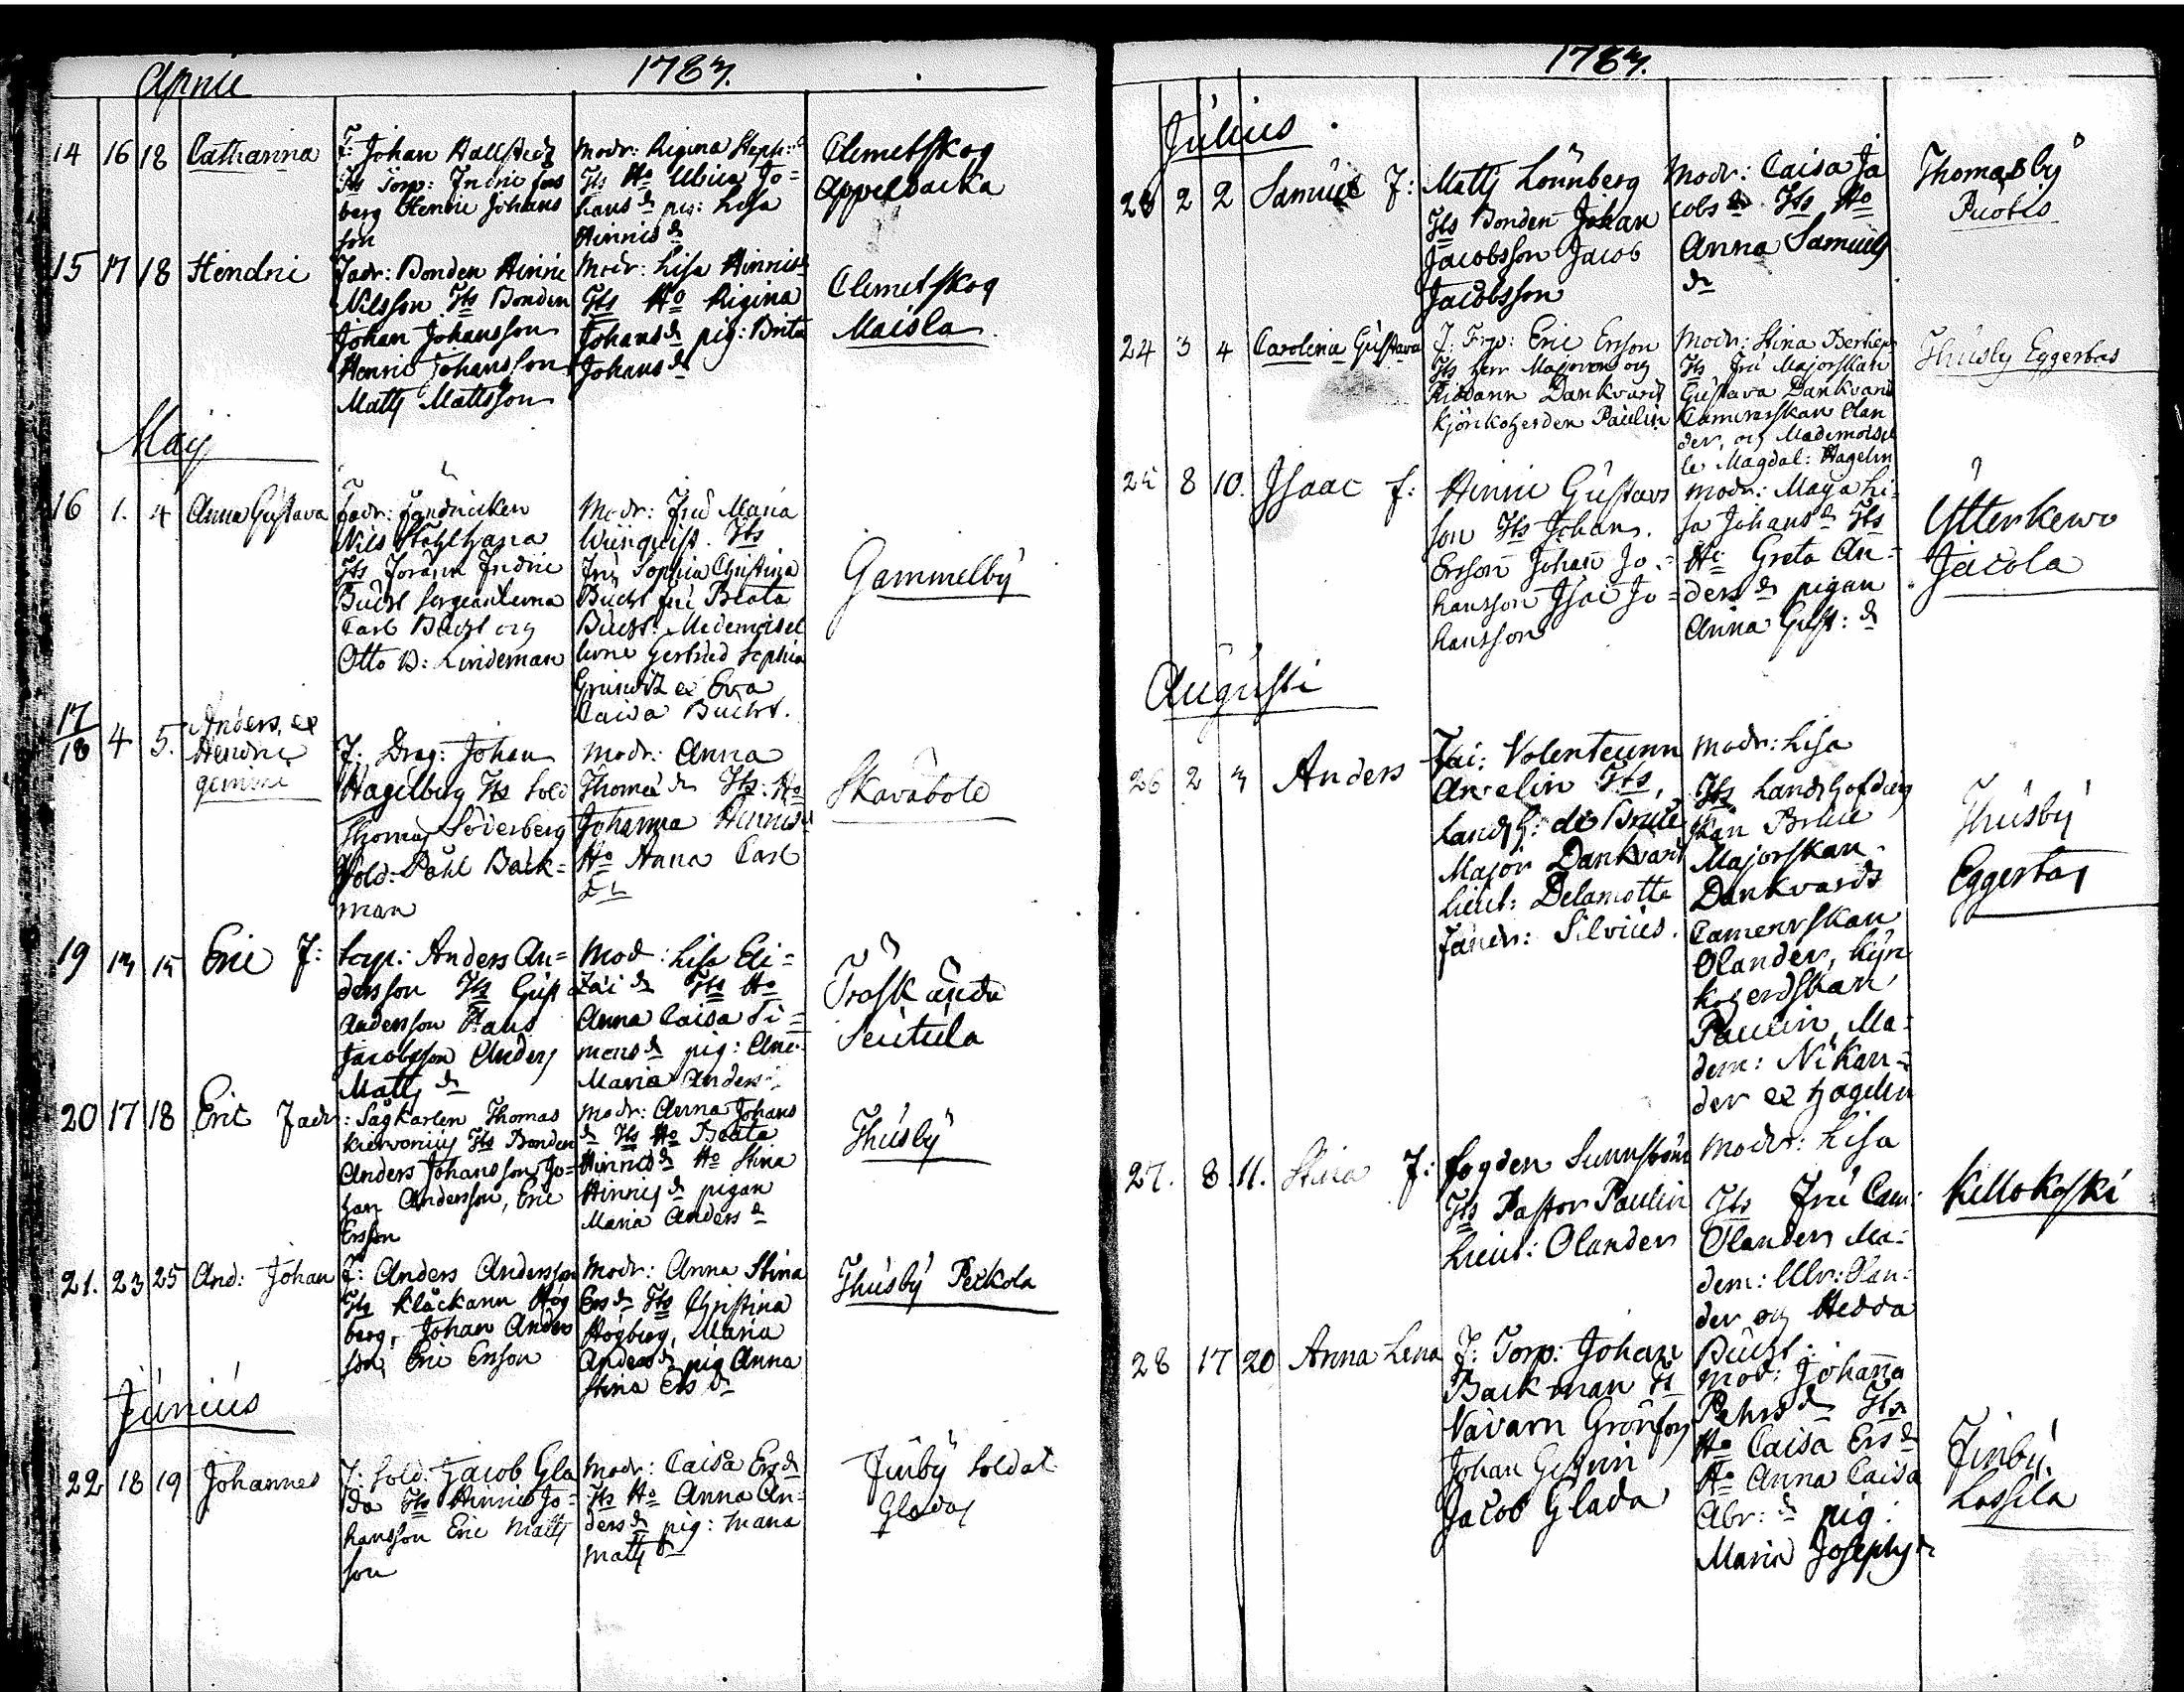 April 1783.
14 16 18 Catharina
F: Johan Hallstedt
Fts Torp: Indric Fors
berg Henric Johans
son
Modr: Regina Steph: dr
Fts Ho Ulrica Jo=
hans dr pig: Lisa
Hinrics dr
Clemetskog
Appelbacka
15 17 18 Hendric
Fadr: Bonden Hinric
Nilsson Fts Bonden
Johan Johansson
Henric Johansson
Matts Mattsson
Modr: Lisa Hinrics dr
Fts Ho Regina
Johans dr pig: Brita
Johans dr
Clemetskog
Maisla
Maij
16 1. 4 Anna Gustava
Fadr: Fendricken
Nils Stählhana
Fts Indric
Bucht Sergeanterna
Carl Bucht och
Otto B: Lindeman
Modr: Fru Maria
Wiinquist. Fts
Fru Sophia Christina
Bucht Fru Beata
Bucht: Mademoisel
lerne Gertrud Sophia
et Eva
Caisa Bucht.
Gammelby
17/18 4 5. Anders, et
Hendric
gemini
F: Drag: Johan
Hagelberg Fts Sold
Thomas Söderberg
Sold: Påhl Back=
man
Modr: Anna
Thomæ dr Fts: Ho
Johanna Hinrics dr
Ho Anna Carl
dr
Skavaböle
19 13 15 Eric F:
torp: Anders An=
dersson Fts Gust
Andersson Hans
Jacobsson Anders
Matts dr
Mod: Lisa Eli=
Zæi dr Fts Ho
Anna Caisa Si=
mons dr pig: Ana
Maria Anders:
Träskända
Seutula
20 17 18 Eric Fadr
: Sågkarlen Thomas
Kiervonius Fts Bonden
Anders Johansson, Jo=
han Andersson, Eric
Ersson
Modr: Anna Johans
dr Fts Ho Beata
Hinrics dr Ho Stina
Hinrics dr pigan
Maria Anders dr
Thusby
21. 23 25 And: Johan
F: Anders Andersson
Fts Klåckarn Hög
berg, Johan Anders
son, Eric Ersson
Modr: Anna Stina
Ers dr Fts Christina
Högberg, Maria
Anders dr pig Anna
Stina Ers dr
Thusby Peckola
Junius
22 18 19 Johannes
F: Sold: Jacob Gla
da Fts Hinric Jo=
hansson Eric Matts
son
Modr: Caisa Ers dr
Fts Ho Anna An=
ders dr pig: Maria
Matts dr
Finby Soldat
Gladas
1783.
Julius
23 2 2 Samuel F:
Matts Lönnberg
Fts Bonden Johan
Jacobsson Jacob
Jacobsson
Modr: Caisa Ja
cobs dr Fts Ho
Anna Samuels
dr
Thomasby
Puotis
24 3 4 Carolina Gustava
F: Trp: Eric Ersson
Fts Herr Majoren och
Riddarn Dankvardt
Kyrkoherden Paulin
Modr: Stina Bertils
Fts Fru Majorskan
Gustava Dankvard
Camrerskan Olan
der, och Mademoisel
le Magdal: Hagelin
Thusby Eggertas
25 8 10. Isaac F:
Hinric Gustavs
son Fts Johan
Ersson Johan Jo=
hansson Isac Jo=
hansson
Modr: Maja Li=
sa Johans dr Fts
Ho Greta An=
ders dr pigan
Anna Gust: dr
Ytterkervo
Jacola
Augusti
26 2 3 Anders
Fai: Volenteurn
Avelin Fts,
Landsh: de Bruce
Major Dankvard
Lieut: Delamotte
Fändr: Silvius.
Modr: Lisa
Fts Landshofding
skan Bruce
Majorskan
Dankvards
Camrerskan
Olander, Kyr
kogerdskan
Paulin, Ma=
dem: Nikan=
der et Hagelin
Thusby
Eggertas
27. 8 11. Stina F:
Fogden Sunnström
Fts Pastor Paulin
Lieut: Olander
Modr: Lisa
Fts Fru Cam:
Olander Ma=
dem: Ulr: Olan=
der och Hedda
Bucht:
Kellokoski
28 17 20 Anna Lena
F: Torp: Johan
Backman Ft
Navarn Grönfors
Johan
Jacob Glada
Mod: Johanna
Pehrs dr Fts
Ho Caisa Ers dr
Ho Anna Caisa
Abr: dr pig:
Maria Josephs dr
Finby
Lassila